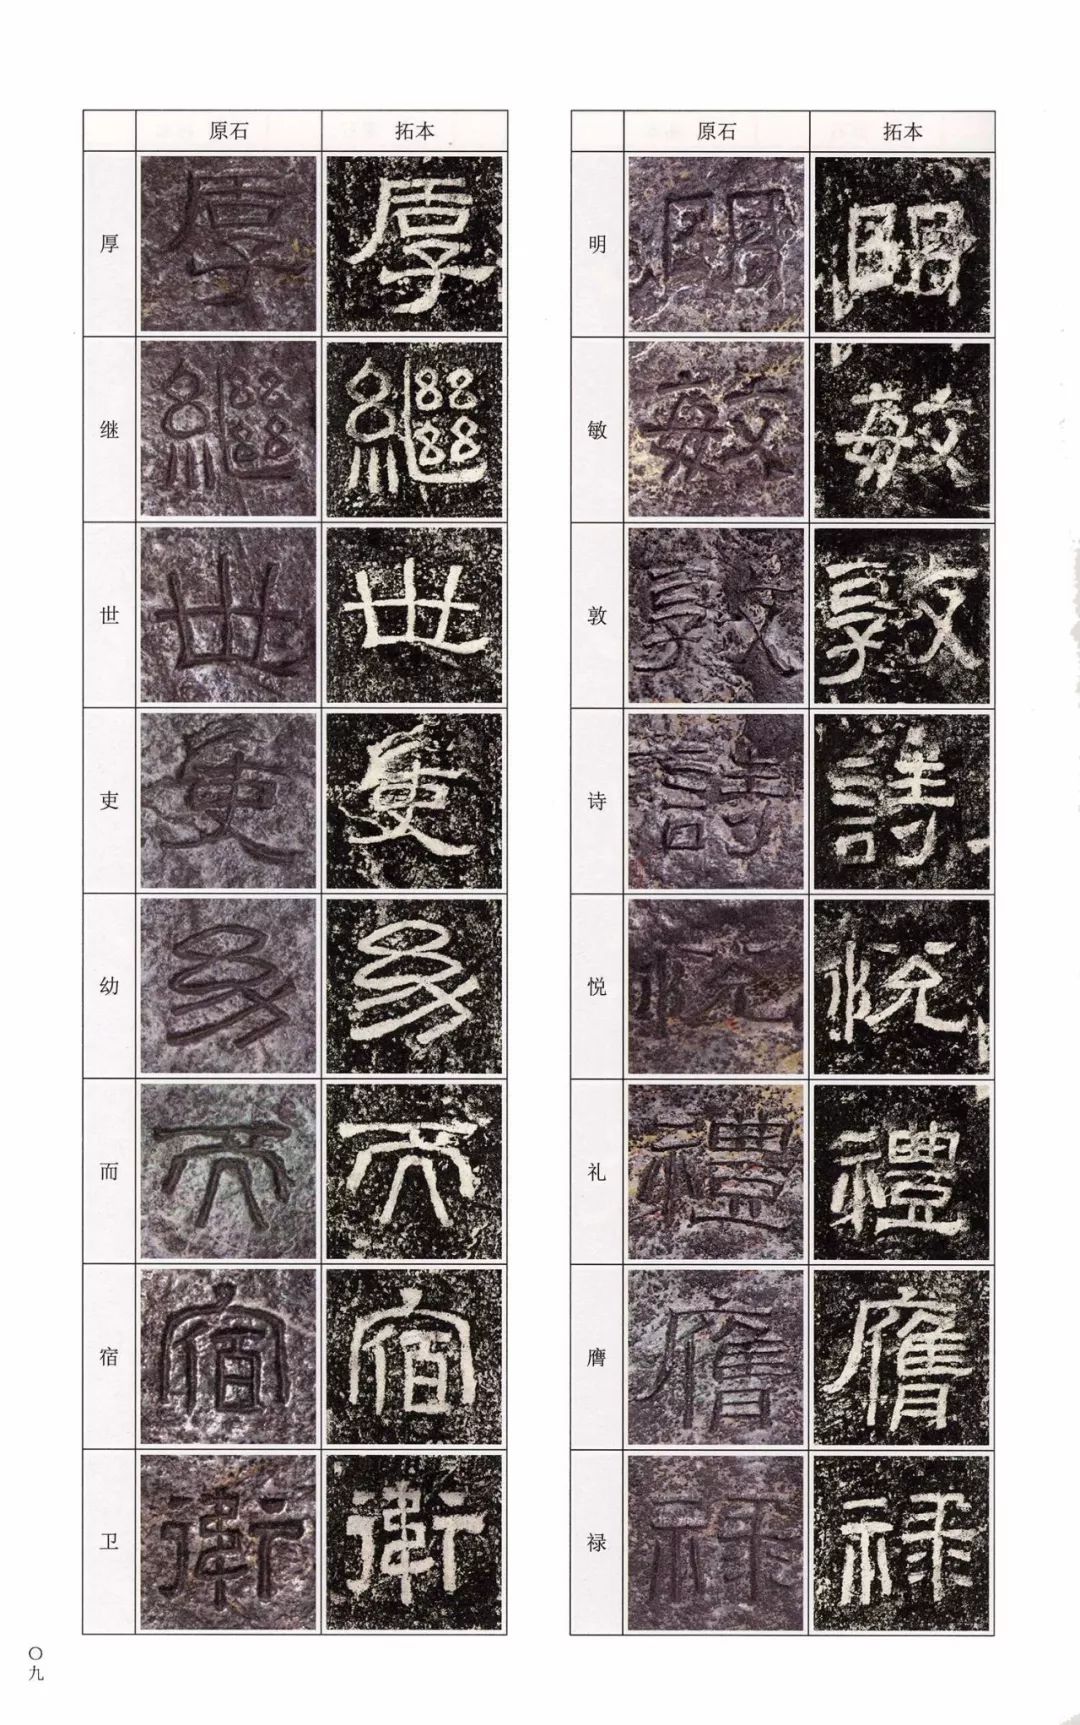 原石 拓本
明 明 明
敏 敏 敏
敦 敦 敦
诗 詩 詩
悦 悦 悦
礼 禮 禮
膺 膺 膺
禄 禄 禄
原石 拓本
厚 厚 厚
继 繼 繼
世 世 世
吏 吏 吏
幼 幼 幼
而 而 而
宿 宿 宿
卫 衛 衛
〇九